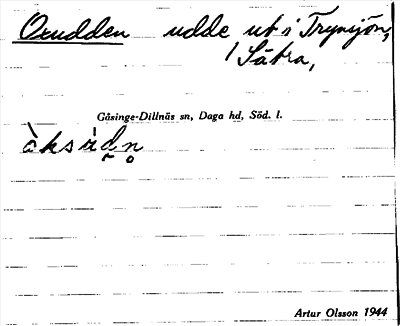 Oxudden udde ut i Trynsjön,
1 Sätra,
Gåsinge-Dillnäs sn, Daga hd, Söd. l.
àksùdn
Artur Olsson 1944